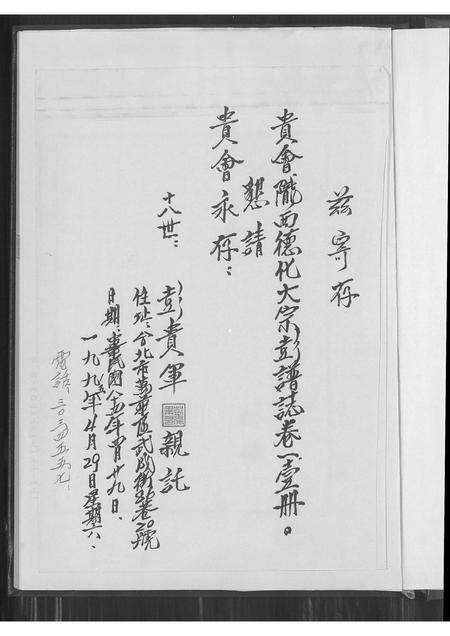 茲寄存
貴會隴西德化大宗彭譜誌卷一壹冊。
懇請
貴會永存：
十八世：彭貴軍 親託
住址：台北市萬華區武成街 巷20號
日期：中華民國八四年四月廿九日、
一九九五年4月29日星期六、
電話：三0三四五五九：